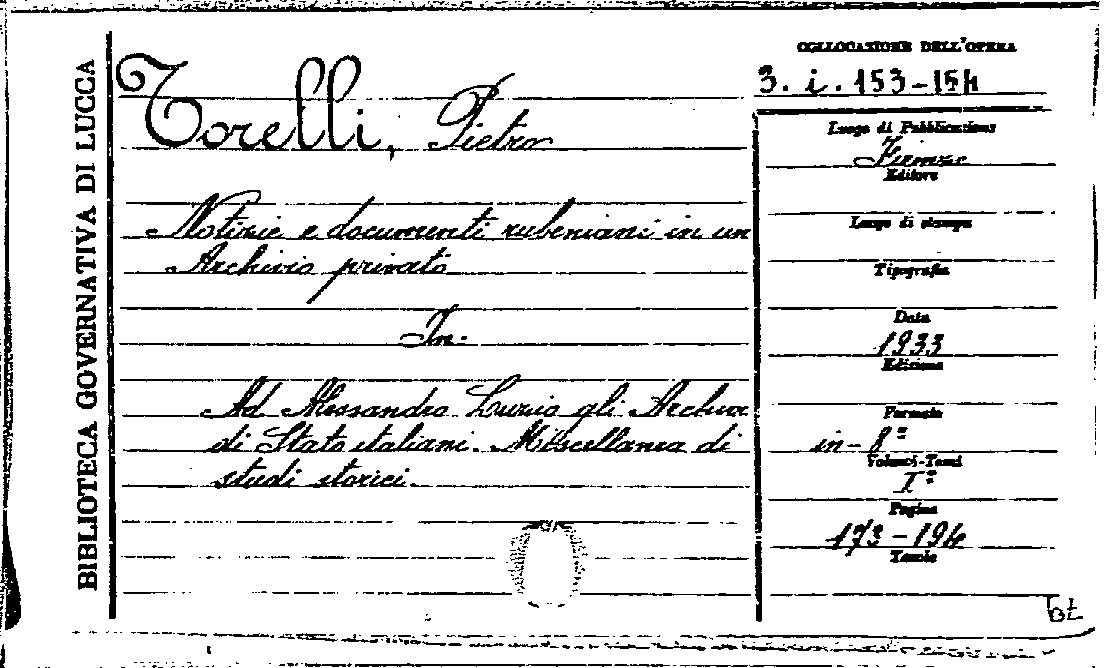 BIBLIOTECA GOVERNATIVA DI LUCCA
Torelli, Pietro
Notizie e documenti rubeniani in un
Archivio privato
In:
Ad Alessandro Luzio gli Archivi
di Stato italiani. Miscellanea di
studi storici.
COLLOCAZIONE DELL'OPERA
3. i. 153-154
Luogo di Pubblicazione
Firenze
Editore
Luogo di stampa
Tipografia
Data
1933
Edizione
Formato
in-8º
Volumi-Tomi
Iº
Pagine
173-194
Tavole